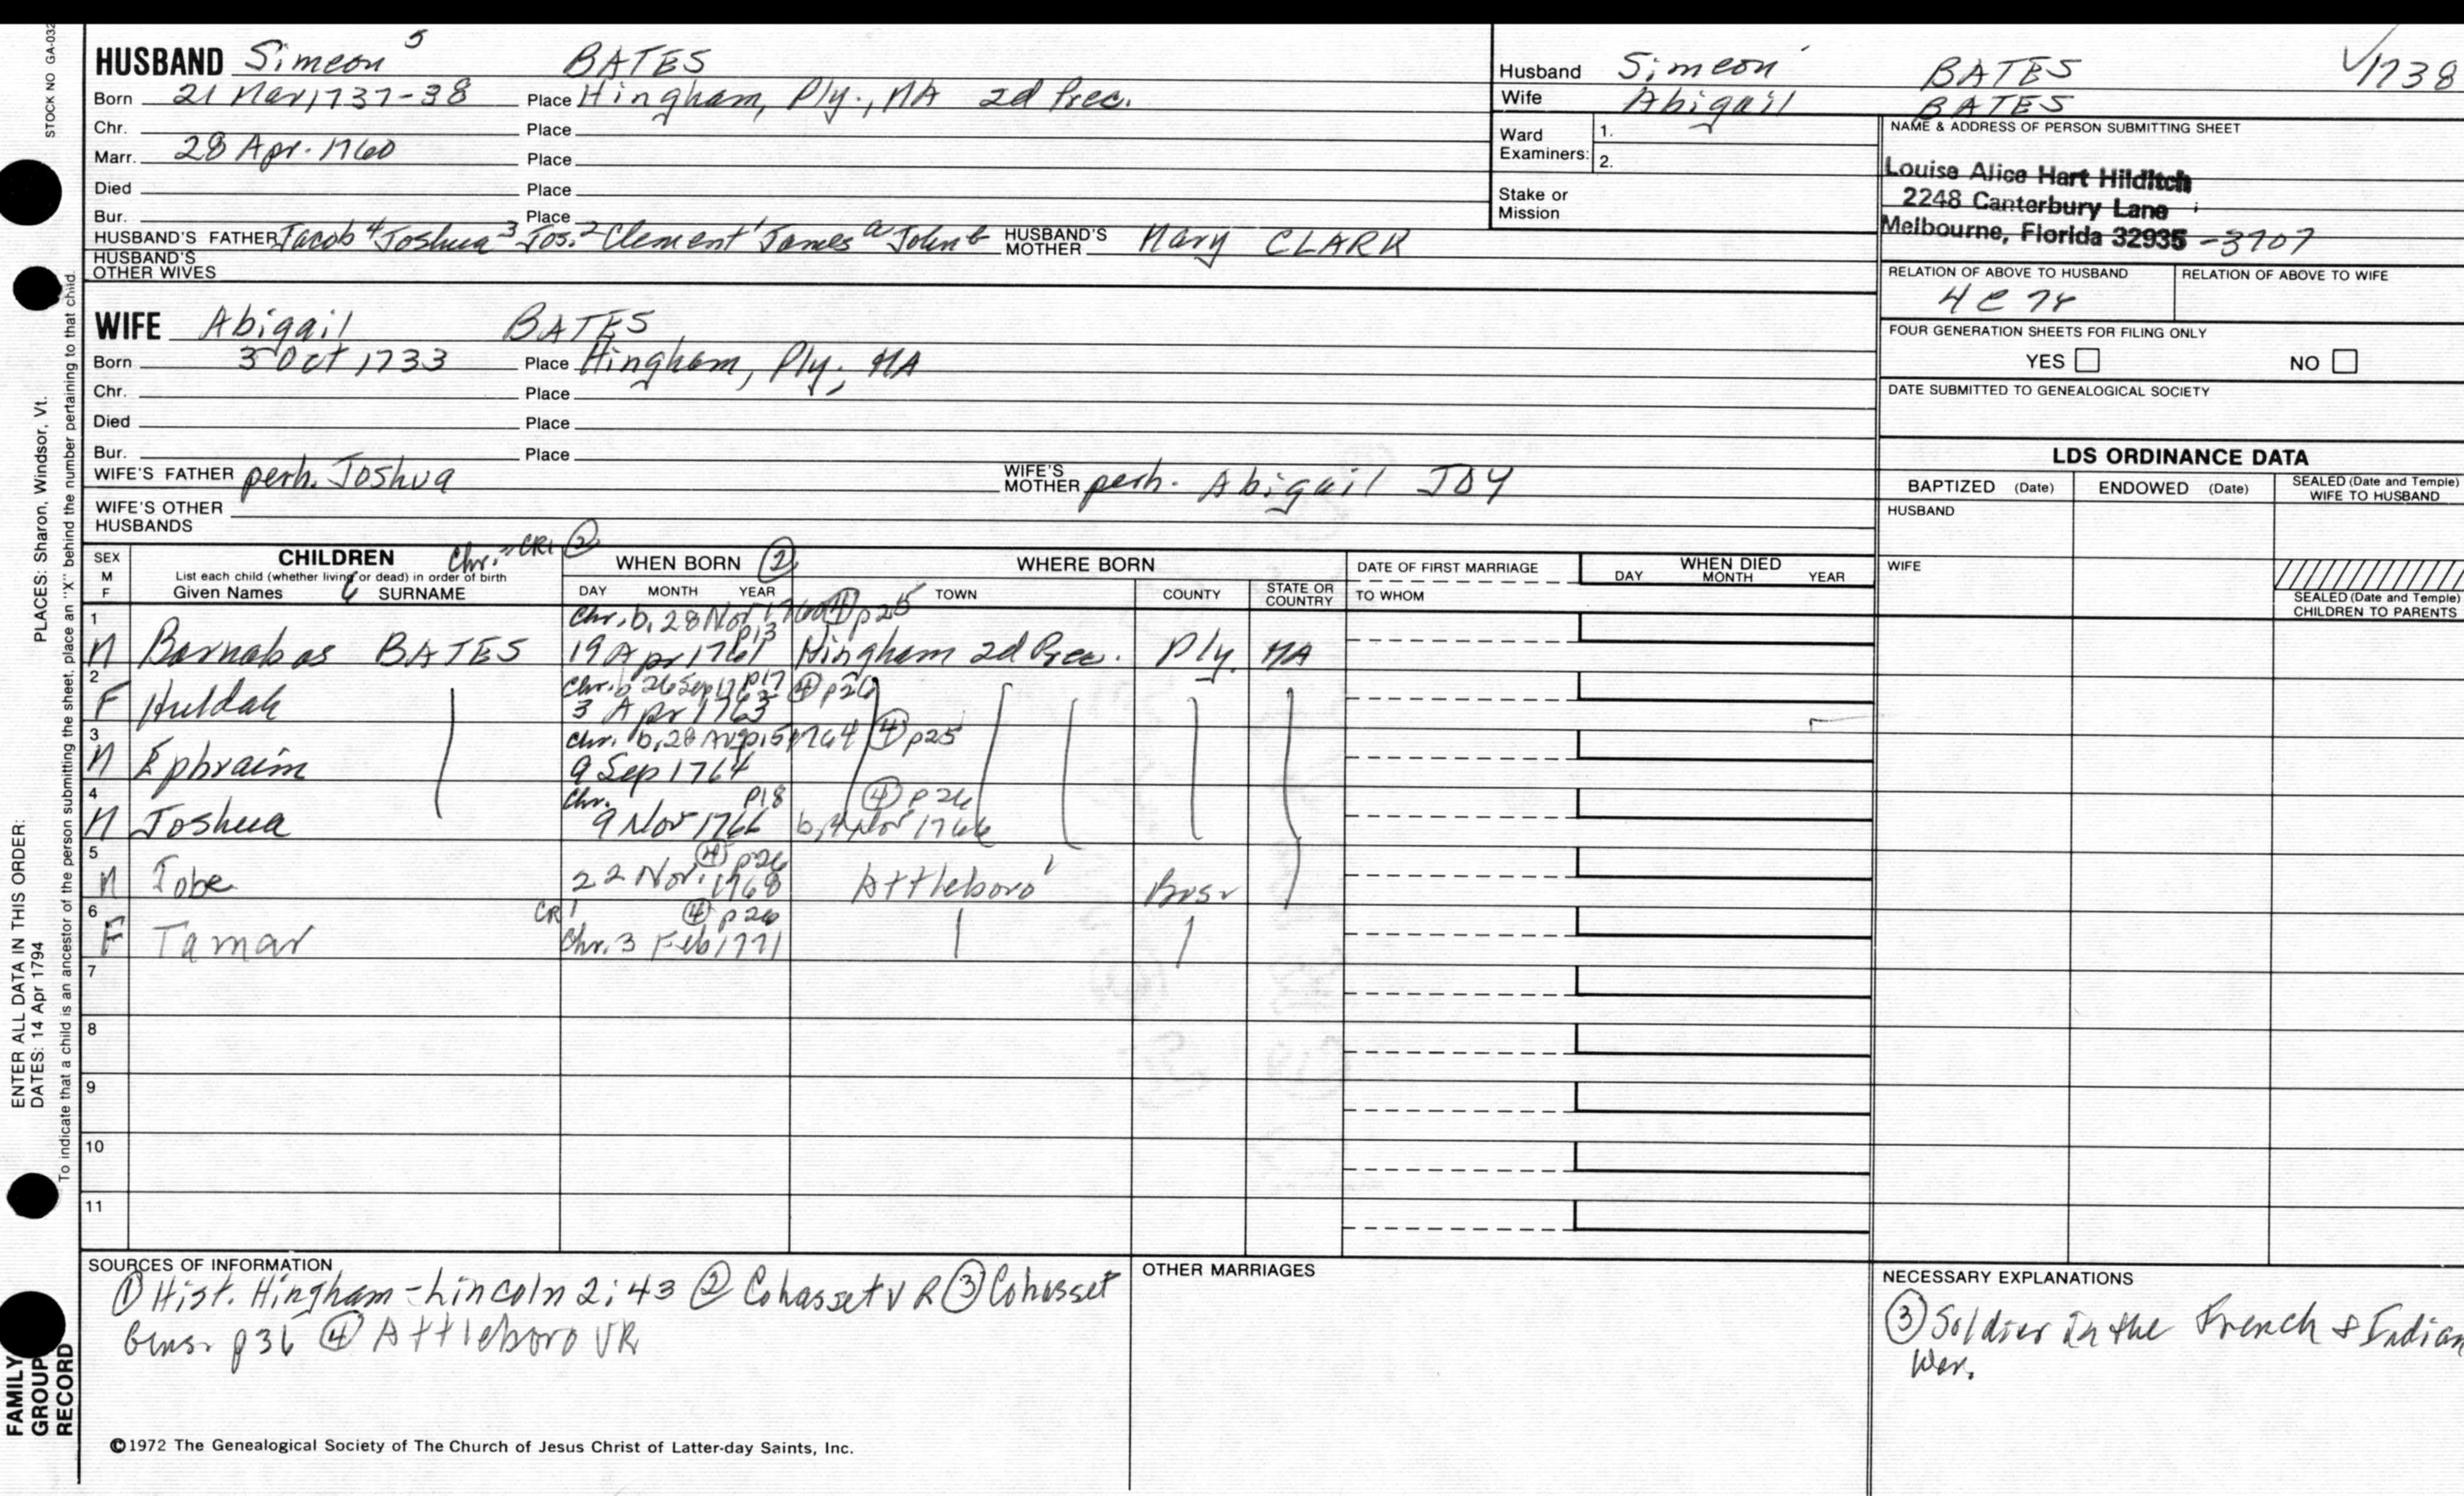 STOCK NO GA-032
HUSBAND Simeon 5 BATES
Born 21 Mar 1737-38 Place Hingham, Ply., MA 2d Prec.
Chr. Place
Marr. 28 Apr. 1760 Place
Died Place
Bur. Place
HUSBAND'S FATHER Jacob 4 Joshua 3 Jos. 2 Clement 1 James a John b HUSBAND'S MOTHER Mary CLARK
HUSBAND'S OTHER WIVES
WIFE Abigail BATES
Born 3 Oct 1733 Place Hingham, Ply., MA
Chr. Place
Died Place
Bur. Place
WIFE'S FATHER perh. Joshua WIFE'S MOTHER perh. Abigail JOY
WIFE'S OTHER HUSBANDS
Husband Simeon BATES √1738
Wife Abigail BATES
Ward Examiners: 1.
2.
Stake or Mission
NAME & ADDRESS OF PERSON SUBMITTING SHEET
Louise Alice Hart Hilditch
2248 Canterbury Lane
Melbourne, Florida 32935 -3707
RELATION OF ABOVE TO HUSBAND RELATION OF ABOVE TO WIFE
4C7r
FOUR GENERATION SHEETS FOR FILING ONLY
YES NO
DATE SUBMITTED TO GENEALOGICAL SOCIETY
LDS ORDINANCE DATA
BAPTIZED (Date) ENDOWED (Date) SEALED (Date and Temple) WIFE TO HUSBAND
HUSBAND
WIFE
SEALED (Date and Temple) CHILDREN TO PARENTS
SEX M F
CHILDREN Chr. = CR1 ②
List each child (whether living or dead) in order of birth
Given Names SURNAME
WHEN BORN ②
DAY MONTH YEAR
WHERE BORN
TOWN COUNTY STATE OR COUNTRY
DATE OF FIRST MARRIAGE
TO WHOM
WHEN DIED
DAY MONTH YEAR
1 Chr. b. 28 Nov 1760 ④ p25
p13
M Barnabas BATES 19 Apr 1761 Hingham 2d Prec. Ply. MA
2 Chr. b 26 Sep 1763 p17 ④ p26
F Huldah 3 Apr 1763
3 Chr. b. 28 Aug 1764 p15 ④ p25
M Ephraim 9 Sep 1764
4 Chr. p18 ④ p26
M Joshua 9 Nov 1766 b. 4 Nov 1766
5 ④ p26
M Tobe 22 Nov. 1768 Attleboro' Brsr
6 CR1 ④ p26
F Tamar Chr. 3 Feb 1771
7
8
9
10
11
SOURCES OF INFORMATION
① Hist. Hingham - Lincoln 2:43 ② Cohasset VR ③ Cohasset
Gens. p36 ④ Attleboro VR
OTHER MARRIAGES
NECESSARY EXPLANATIONS
③ Soldier in the French & Indian
War.
©1972 The Genealogical Society of The Church of Jesus Christ of Latter-day Saints, Inc.
FAMILY GROUP RECORD
ENTER ALL DATA IN THIS ORDER:
DATES: 14 Apr 1794
PLACES: Sharon, Windsor, Vt.
To indicate that a child is an ancestor of the person submitting the sheet, place an "X" behind the number pertaining to that child.